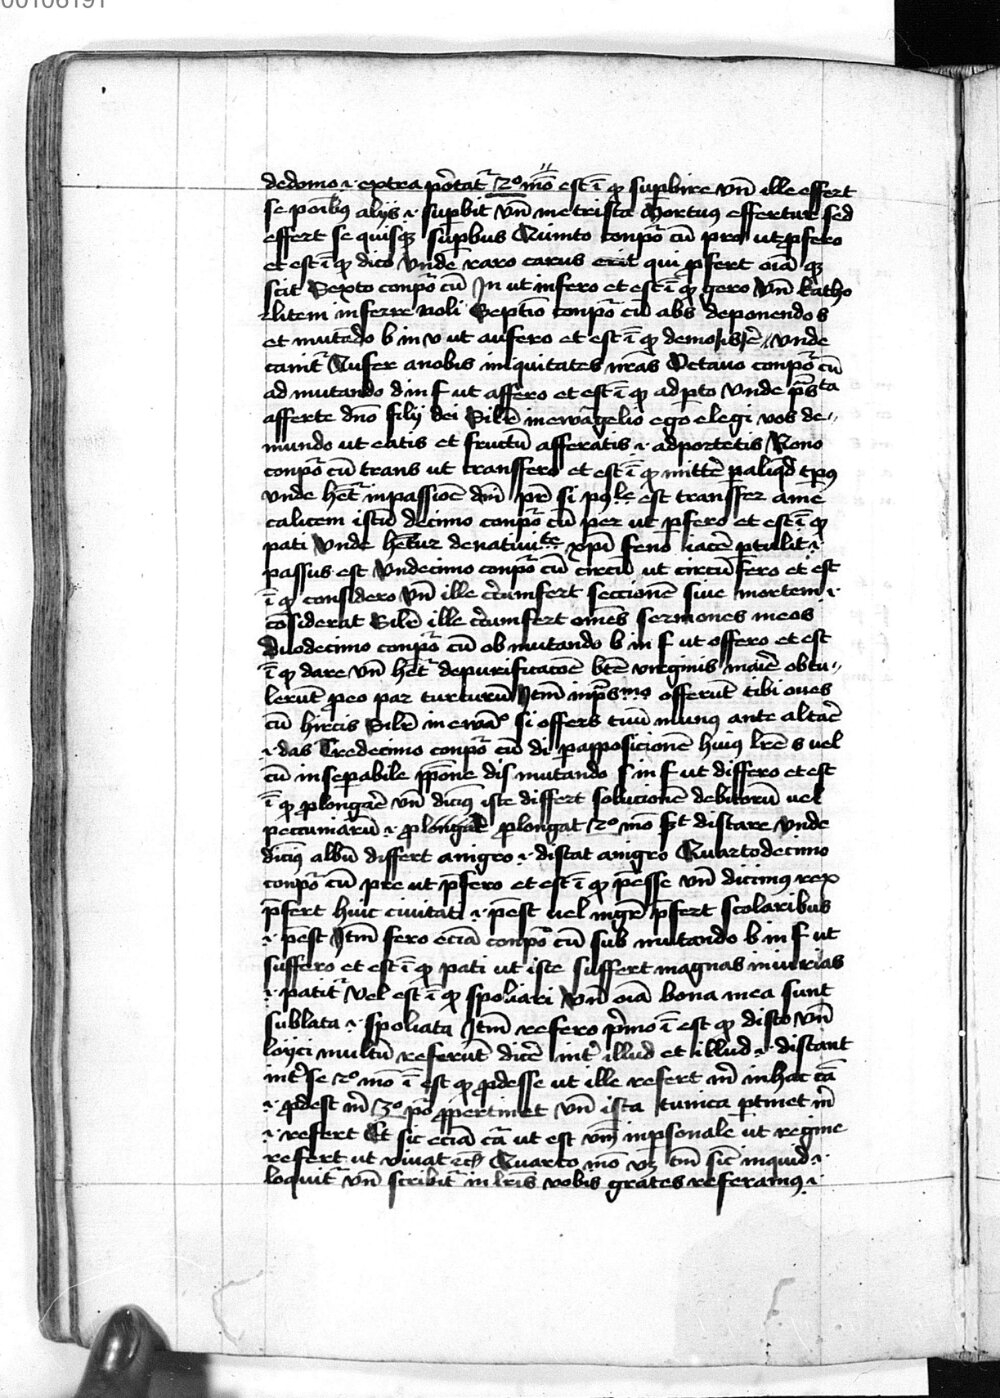 00106191
de domo .i. extra po̅tat᷑ 2º mo̅ est i̅ qd̛ supbire vn̅ ille effert
se po̅ibus alijs .i. supbit vn̅ metrista Mortuus effertur sed
effert se quisqȝ supbus Quinto conpo̅ cu̅ pro ut pfero
et est i̅ qd̛ dico vnde raro carus erit qui pfert oi̅a qȝ
scit Sexto conpo̅ cu̅ In ut infero et est i̅ qd̛ gero vn̅ katho
litem inferre noli Septi̅o conpo̅ cu̅ abs deponendo s
et muta̅do b in v ut aufero et est i̅ qd̛ vnde
canit᷑ Aufer a nobis iniquitates nr̅as Octauo conpo̅ cu̅
ad mutando d in f ut affero et est i̅ qd̛ ad pto vnde ps̅ta
afferte dn̅o filij dei Silr̅ in ewa̅gelio ego elegi vos de
mundo ut eatis et fructu̅ afferatis .i. adportetis Nono
conpo̅ cu̅ trans ut transfero et est i̅ qd̛ mitte̅ p aliqd tpus
vnde het᷑ in passioe̅ dn̅i pr̅ si pole est transfer a me
calicem istu̅ decimo conpo̅ cu̅ per ut pfero et est i̅ qd̛
pati vnde het̅ur de natiuite xpi̅ feno iace̅ ptulit .i.
passus est Vndecimo conpo̅ cu̅ circu̅ ut circu̅fero et est
i̅ qd̛ considero vn̅ ille c̅cumfert seccione̅ siue mortem .i.
co̅siderat Silr̅ ille c̅cumfert om̅es sermones meos
duodecimo conpo̅ cu̅ ob mutando b in f ut offero et est
i̅ qd̛ dare vn̅ het᷑ de purificacoe̅ bt̅e virginis marie̅ obtu
lerut̅ p eo par turturu̅ Itm̅ in psmo offerut̅ tibi oues
cu̅ hircis Silr̅ in ewa̅º si offers tuu̅ munus ante altar̅
.i. das Tredecimo conpo̅ cu̅ di p apposicione̅ huius lr̅e s uel
cu̅ inseparabile ppo̅ne dis mutando s in f ut differo et est
i̅ qd̛ plongare̅ vn̅ dicimus iste differt solucione̅ debitoru̅ uel
peccuniaru̅ .i. prolongat 2º mo̅ distare vnde
dicimus albu̅ differt a nigro .i. distat a nigro Quartodecimo
conpo̅ cu̅ pre ut p̅fero et est i̅ qd̛ p̅esse vn̅ dicimus rex
p̅fert huic ciuitati .i. p̅est uel mgr̅ p̅fert scolaribus
.i. p̅est Itm̅ fero ecia̅ conpo̅ cu̅ sub mutando b in f ut
suffero et est i̅ qd̛ pati ut iste suffert magnas iniurias
.i. patit᷑ vel est i̅ qd̛ spoliari vn̅ oi̅a bona mea sunt
sublata .i. spoliata Itm̅ refero p̅mo i̅ est qd̛ disto vn̅
loyci multu̅ referut̅ dice̅ int̅ illud et illud .i. distant
int̅ se 2º mo̅ i̅ est qd̛ pdesse ut ille refert m̅ in hac ca̅
.i. pdest m̅ 3º pertinet vn̅ ista tunica ptinet m̅
.i. refert Et sic ecia̅ ca̅ ut est vm̅ inpsonale ut regine
refert ut viuat Quarto mo̅ vȝ tm̅ sic̅ inquid .i.
loquit᷑ vn̅ scribit᷑ in lr̅is vobis grates referamus .i.